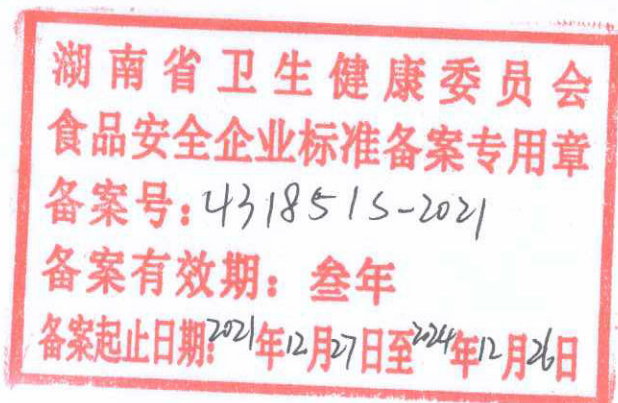 湖南省卫生健康委员会
食品安全企业标准备案专用章
备案号：4318515-2021
备案有效期：叁年
备案起止日期：2021年12月27日至2024年12月26日